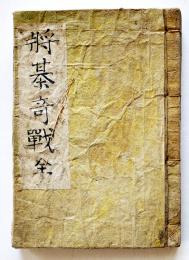 將棊奇戰 全